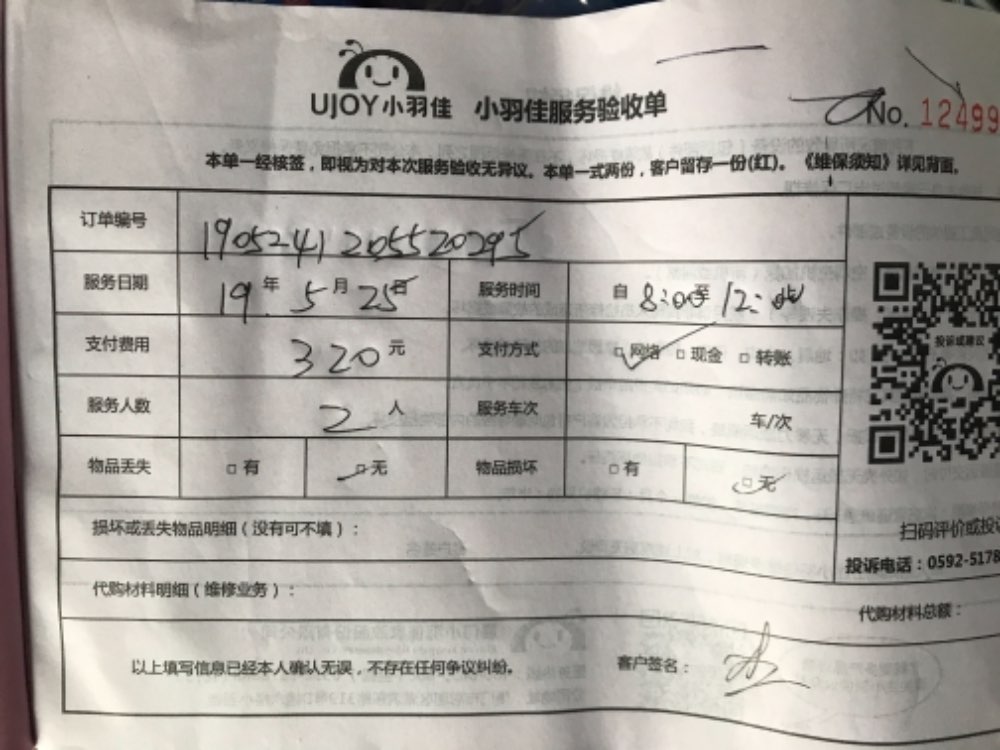 UJOY小羽佳 小羽佳服务验收单
No. 12499
本单一经核签，即视为对本次服务验收无异议。本单一式两份，客户留存一份(红)。《维保须知》详见背面。
订单编号 19052412055520295
服务日期 19年 5月 25日 服务时间 自 8:00至 12:
支付费用 320元 支付方式 □网络 □现金 □转账
服务人数 2人 服务车次 车/次
物品丢失 □有 □无 物品损坏 □有 □无
投诉或建议
损坏或丢失物品明细（没有可不填）：
扫码评价或投
投诉电话：0592-5178
代购材料明细（维修业务）：
代购材料总额：
以上填写信息已经本人确认无误，不存在任何争议纠纷。 客户签名：